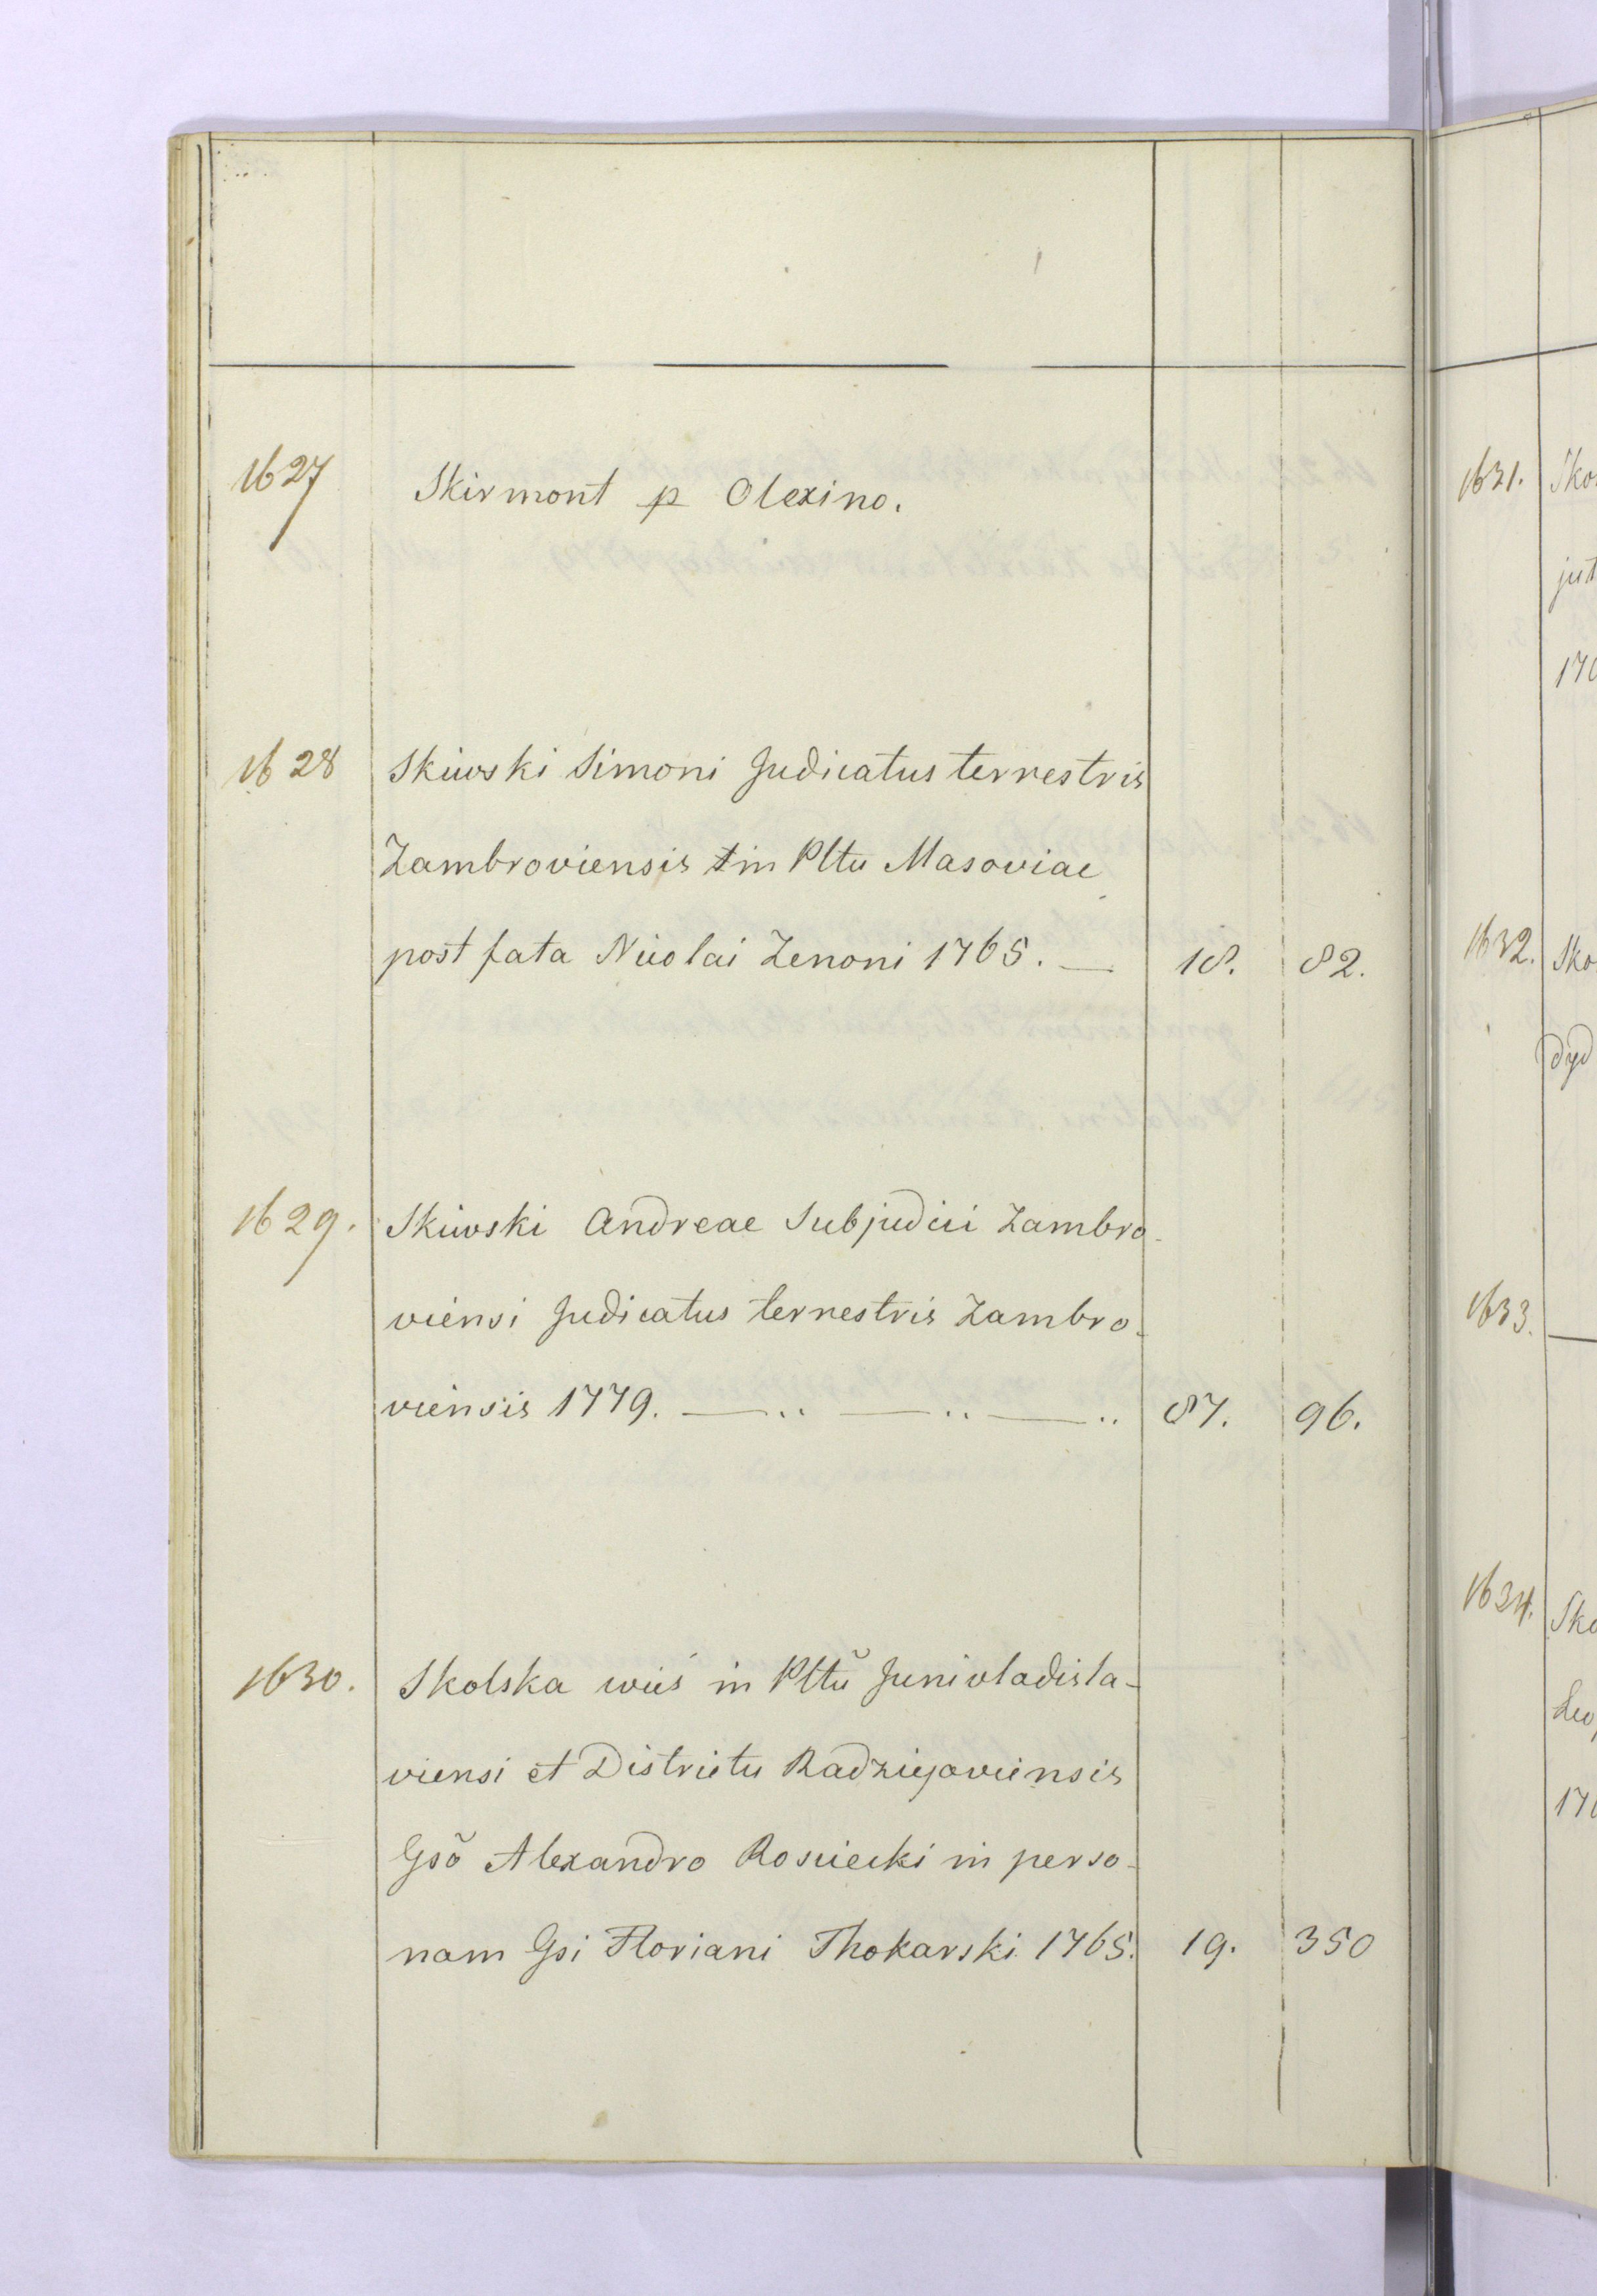 1627 Skirmont p Olexino.
1628 Skiwski Simoni Judicatus terrestris
Zambroviensis in Pltu Masoviae
post fata Nicolai Zenoni 1765. — 18. 82.
1629. Skiwski Andreae Subjudici Zambro-
viensi Judicatus terrestris Zambro-
viensis 1779. — .. — .. — .. 87. 96.
1630. Skolska wieś in Pltũ Junivladisla-
viensi et Districtu Radziejoviensis
Gsõ Alexandro Rosciecki in perso-
nam Gsi Floriani Thokarski 1765. 19. 350
1631. Sko
jut
170
1632. Sko
dyd
1633. —
1634. Sko
Leo
170